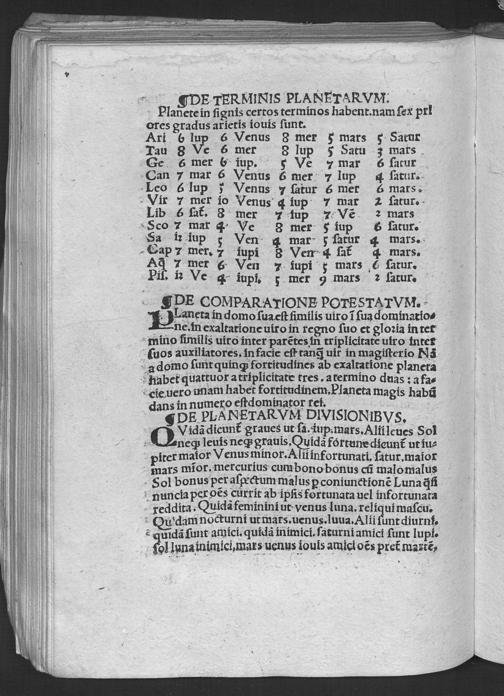 ¶DE TERMINIS PLANETARVM.
Planete in signis certos terminos habent.nam sex pri
ores gradus arietis iouis sunt.
Ari 6 Iup 6 Venus 8 mer 5 mars 5 Satur
Tau 8 Ve 6 mer 8 Iup 5 Satu 3 mars
Ge 6 mer 6 iup. 5 Ve 7 mar 6 satur
Can 7 mar 6 Venus 6 mer 7 Iup 4 satur.
Leo 6 Iup 5 Venus 7 satur 6 mer 6 mars.
Vir 7 mer 10 Venus 4 iup 7 mar 2 satur.
Lib 6 sat̄. 8 mer 7 iup 7 Vē 2 mars
Sco 7 mar 4 Ve 8 mer 5 iup 6 satur.
Sa 12 iup 5 Ven 4 mar 5 satur 4 mars.
Cap 7 mer. 7 iupi 8 Ven 4 sat̄ 4 mars.
Aq̄ 7 mer 6 Ven 7 iupi 5 mars 6 satur.
Pis. 12 Ve 4 iupi, 5 mer 9 mars 2 satur.
¶DE COMPARATIONE POTESTATVM.
PLaneta in domo sua est similis uiro ī sua dominatio-
ne.in exaltatione uiro in regno suo et gloria in ter
mino similis uiro inter parētes in triplicitate uiro inter
suos auxiliatores. in facie est tanq̄ uir in magisterio Nā
a domo sunt quinq; fortitudines ab exaltatione planeta
habet quattuor a triplicitate tres. a termino duas : a fa-
cie uero unam habet fortitudinem. Planeta magis habū
dans in numero est dominator rei.
¶DE PLANETARVM DIVISIONIBVS.
QVidā dicunt̄ graues ut sa. iup. mars. Alii leues Sol
neq; leuis neq; grauis. Quidā fortune dicunt̄ ut iu-
piter maior Venus minor. Alii infortunati. satur. maior
mars mīor. mercurius cum bono bonus cū malo malus
Sol bonus per aspectum malus p coniunctionē Luna q̄si
nuncia per oēs currit ab ipsis fortunata uel infortunata
reddita. Quidā feminini ut uenus luna. reliqui mascu.
Qu'dam nocturni ut mars. uenus. luua. Alii sunt diurni.
quidā sunt amici. quidā inimici. saturni amici sunt Iupi.
sol luna inimici, mars uenus iouis amici oēs pret̄ martē,